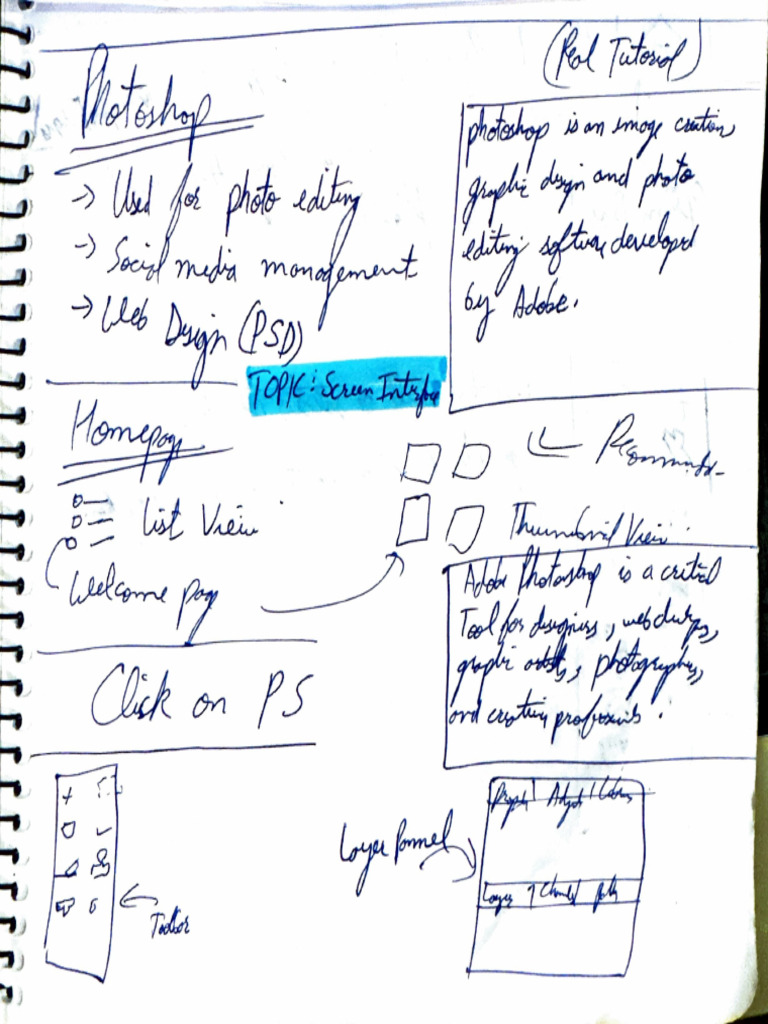 (Real Tutorial)
Photoshop
→ Used for photo editing
→ Social media management
→ Web Design (PSD)
photoshop is an image creation,
graphic design and photo
editing software developed
by Adobe.
TOPIC: Screen Interface
Homepage
List View
Welcome page
Thumbnail View
Click on PS
Adobe Photoshop is a critical
Tool for designers, web
graphic artists, photographers,
and creative professionals.
Toolbar
Layer Pannel